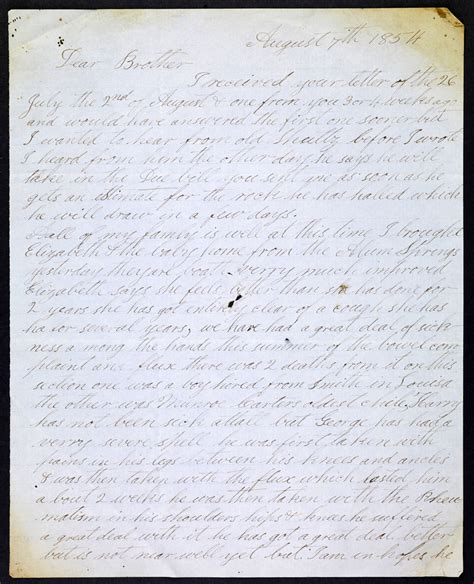 August 7th 1854
Dear Brother
I received your letter of the 26
July the 2nd of August & one from you 3 or 4 weeks ago
and would have answered the first one sooner but
I wanted to hear from old Shultz before I wrote
I heard from him the other day he says he will
take in the Due bill you sent me as soon as he
gets an Stimate for the rock he has hailed which
he will draw in a few days.
all of my family is well at this time I brought
Elizabeth & the baby home from the Alum Springs
yesterday they are boath verry much improved
Elizabeth says she feels better than she has done for
2 years she has got entirely clear of a cough she has
had for several years, we have had a great deal of sick
ness a mong the hands this summer of the bowel com
plaint and flux there was 2 deaths from it on this
section one was a boy hired from Smith in Louisa
the other was Munroe Carters oldest child, Harry
has not been sick atall but George has had a
verry severe spell he was first taken with
pains in his legs between his knees and ancles
& was then taken with the flux which lasted him
a bout 2 weeks he was then taken with the Rheu
matism in his shoulders hips & knees he suffired
a great deal with it he has got a great deal better
but is not near well yet but I am in hopes he